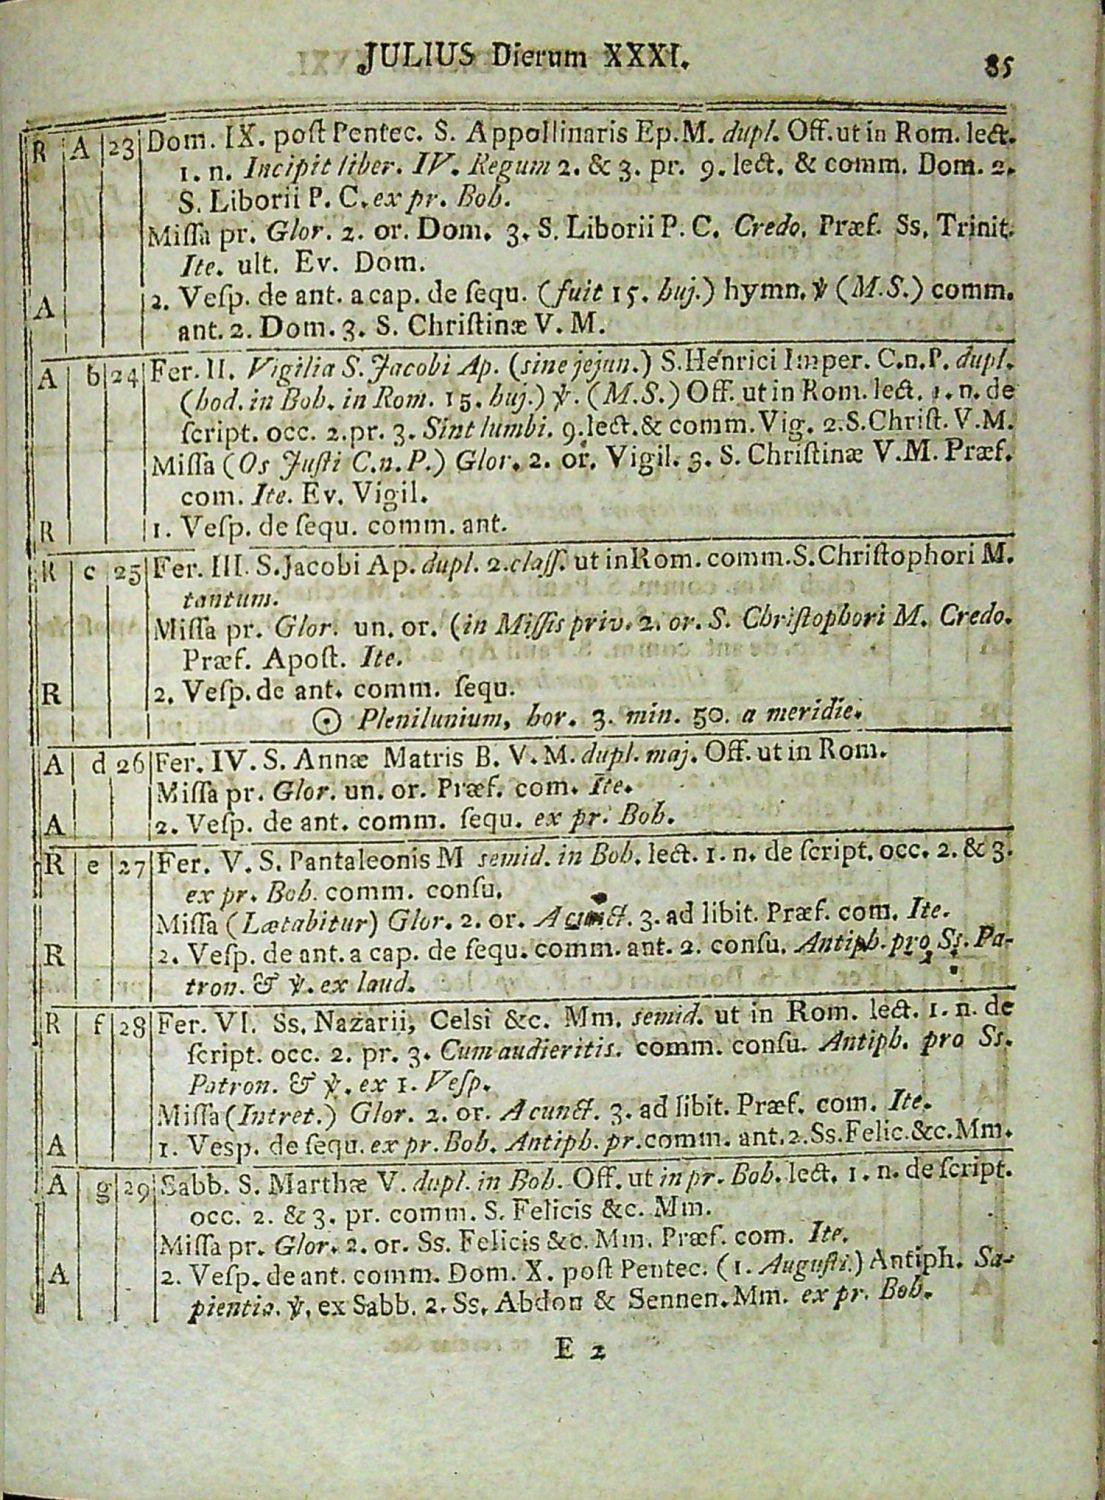 JULIUS Dierum XXXI. 85
R A 23 Dom. IX. poſt Pentec. S. Appollinaris Ep.M. dupl. Off.ut in Rom. lect.
1. n. Incipit liber. IV. Regum 2. & 3. pr. 9. lect. & comm. Dom. 2.
S. Liborii P. C. ex pr. Boh.
Miſſa pr. Glor. 2. or. Dom. 3. S. Liborii P. C. Credo. Præf. Ss. Trinit.
Ite. ult. Ev. Dom.
A 2. Veſp. de ant. a cap. de ſequ. (fuit 15. huj.) hymn. ℣ (M.S.) comm.
ant. 2. Dom. 3. S. Chriſtinæ V. M.
A b 24 Fer. II. Vigilia S. Jacobi Ap. (sine jejun.) S. Henrici Imper. C.n.P. dupl.
(hod. in Boh. in Rom. 15. huj.) ℣. (M.S.) Off. ut in Rom. lect. 1. n. de
ſcript. occ. 2. pr. 3. Sint lumbi. 9. lect. & comm. Vig. 2. S. Chriſt. V. M.
Miſſa (Os Juſti C.n.P.) Glor. 2. or. Vigil. 3. S. Chriſtinæ V.M. Præf.
com. Ite. Ev. Vigil.
R 1. Veſp. de ſequ. comm. ant.
R c 25 Fer. III. S. Jacobi Ap. dupl. 2. claſſ. ut in Rom. comm. S. Chriſtophori M.
tantum.
Miſſa pr. Glor. un. or. (in Miſſis priv. 2. or. S. Chriſtophori M. Credo.
Præf. Apoſt. Ite.
R 2. Veſp. de ant. comm. ſequ.
☉ Plenilunium, hor. 3. min. 50. a meridie.
A d 26 Fer. IV. S. Annæ Matris B. V. M. dupl. maj. Off. ut in Rom.
Miſſa pr. Glor. un. or. Præf. com. Ite.
A 2. Veſp. de ant. comm. ſequ. ex pr. Boh.
R e 27 Fer. V. S. Pantaleonis M semid. in Boh. lect. 1. n. de ſcript. occ. 2. & 3.
ex pr. Boh. comm. conſu.
Miſſa (Lætabitur) Glor. 2. or. A cunct. 3. ad libit. Præf. com. Ite.
R 2. Veſp. de ant. a cap. de ſequ. comm. ant. 2. conſu. Antiph. pro Ss. Pa-
tron. & ℣. ex laud.
R f 28 Fer. VI. Ss. Nazarii, Celsi &c. Mm. semid. ut in Rom. lect. 1. n. de
ſcript. occ. 2. pr. 3. Cum audieritis. comm. conſu. Antiph. pro Ss.
Patron. & ℣. ex 1. Veſp.
Miſſa (Intret.) Glor. 2. or. A cunct. 3. ad libit. Præf. com. Ite.
A 1. Vesp. de ſequ. ex pr. Boh. Antiph. pr. comm. ant. 2. Ss. Felic. &c. Mm.
A g 29 Sabb. S. Marthæ V. dupl. in Boh. Off. ut in pr. Boh. lect. 1. n. de ſcript.
occ. 2. & 3. pr. comm. S. Felicis &c. Mm.
Miſſa pr. Glor. 2. or. Ss. Felicis &c. Mm. Præf. com. Ite.
A 2. Veſp. de ant. comm. Dom. X. poſt Pentec. (1. Auguſti.) Antiph. Sa-
pientia. ℣. ex Sabb. 2. Ss. Abdon & Sennen. Mm. ex pr. Boh.
E 2